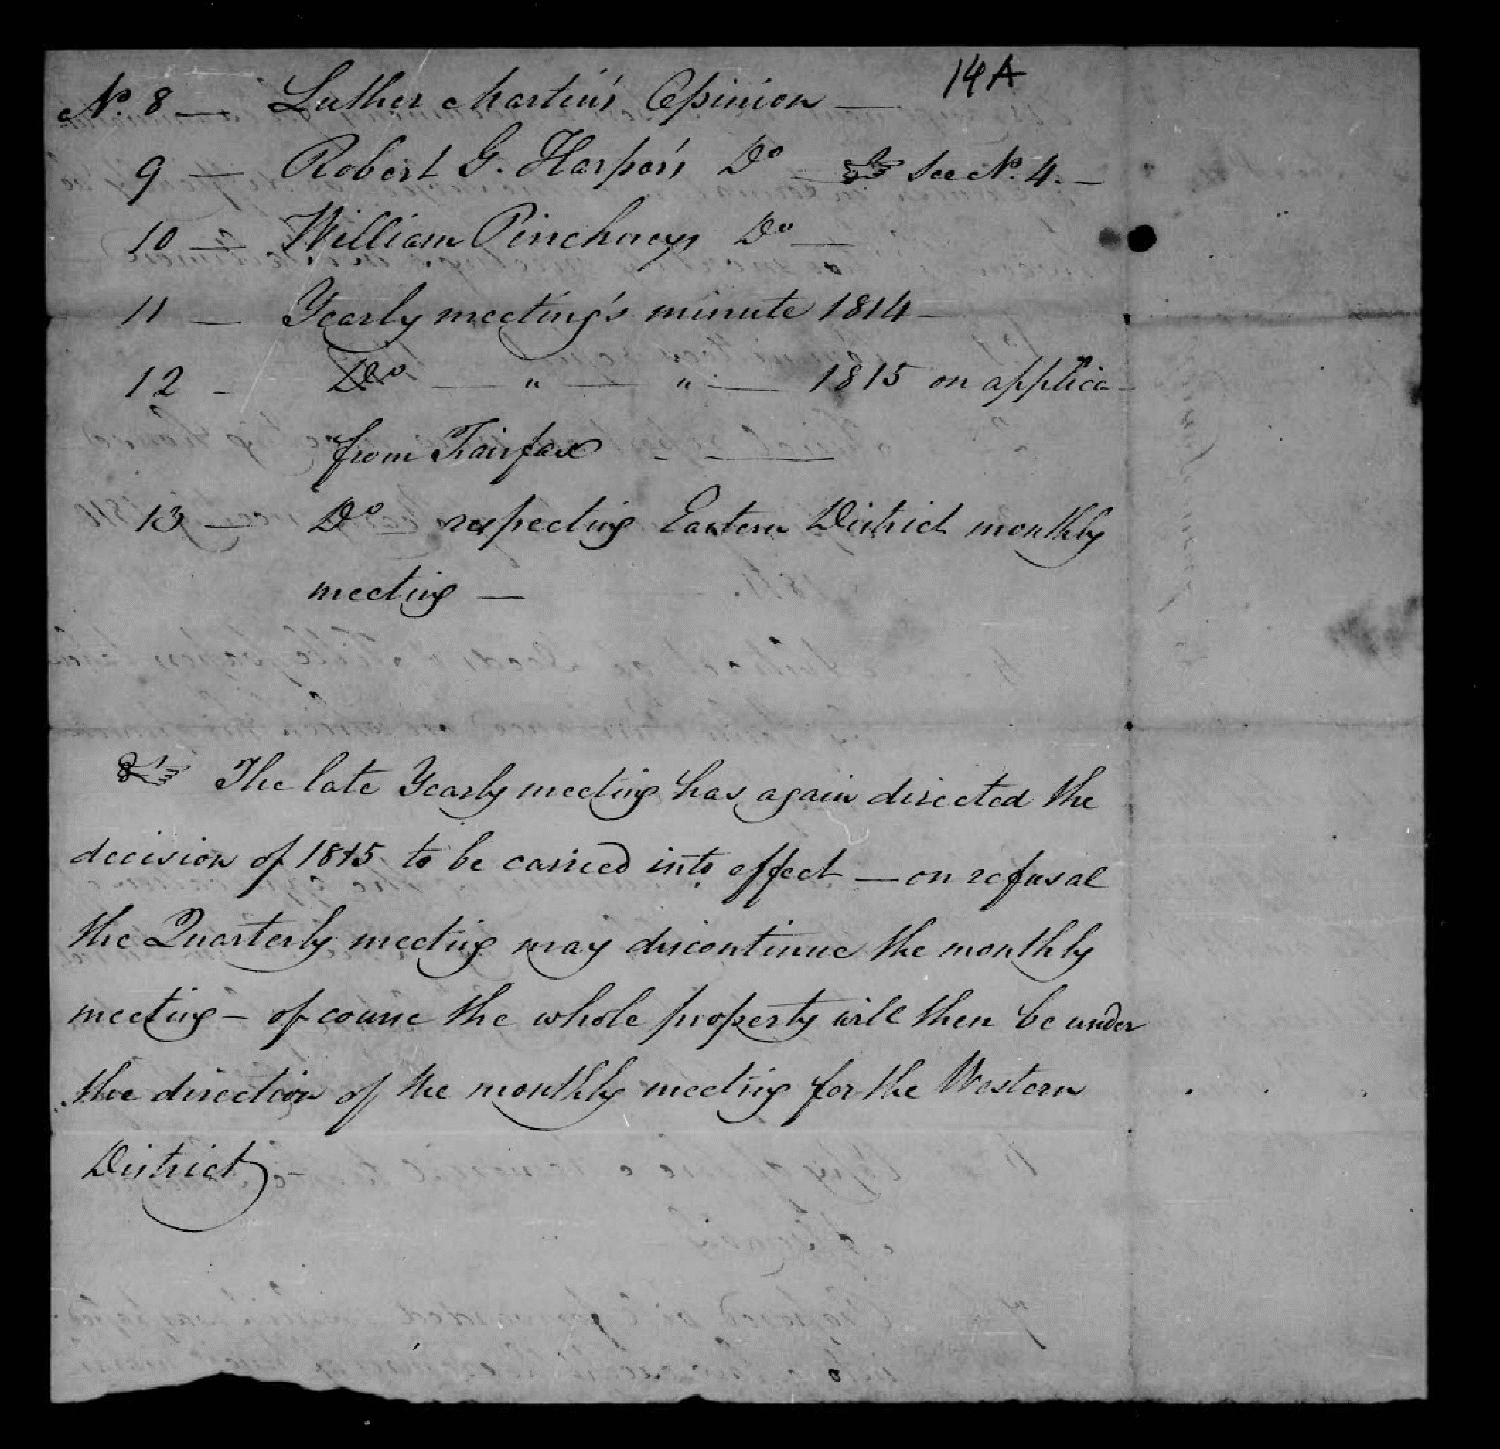 14A
No. 8 — Luther Martin's Opinion —
9 — Robert G. Harper's Do — ☞ See No. 4. —
10 — William Pinckneys Do —
11 — Yearly meeting's minute 1814 —
12 - Do — " — " — 1815 on applica-
from Fairfax - —
13 — Do respecting Eastern District monthly
meeting —
☞ The late Yearly meeting has again directed the
decision of 1815 to be carried into effect — on refusal
the Quarterly meeting may discontinue the monthly
meeting – of course the whole property will then be under
the direction of the monthly meeting for the Western
District -